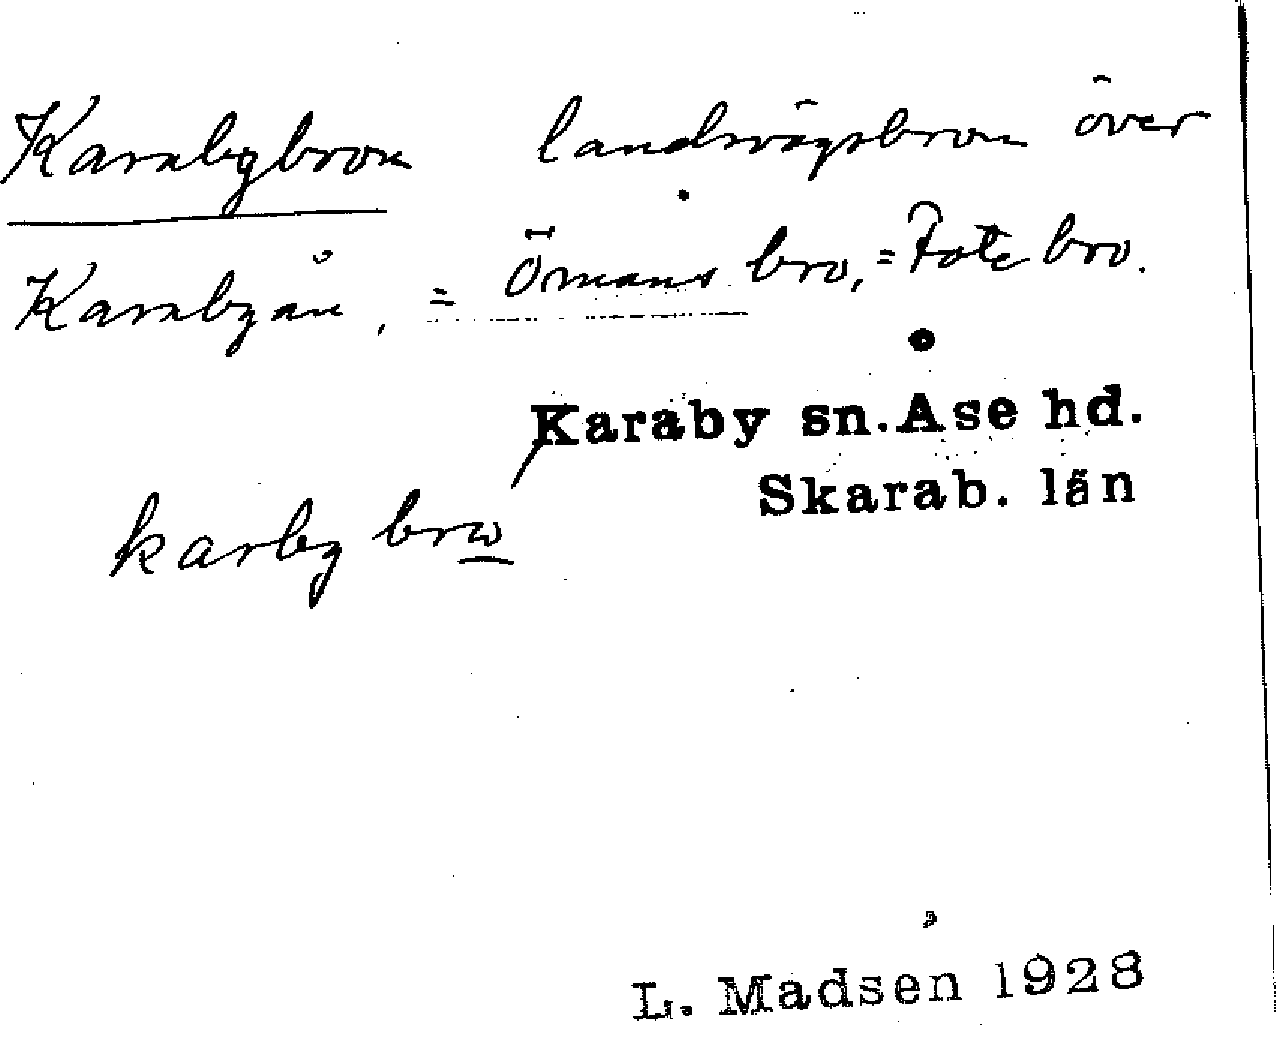 Karabybron landsvägsbron över
Karabyån, = Ömans bro, = Fote bro.
Karaby sn. Åse hd.
Skarab. län
karby brω
L. Madsen 1928